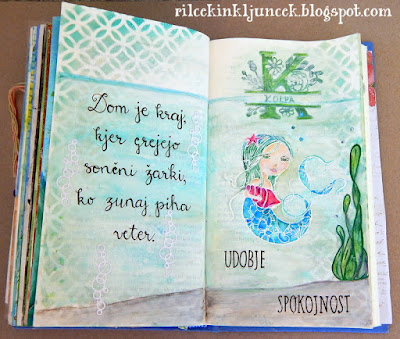 rilcekinkljuncek.blogspot.com
Dom je kraj,
kjer grejejo
sončni žarki,
ko zunaj piha
veter.
K
KOLPA
UDOBJE
SPOKOJNOST